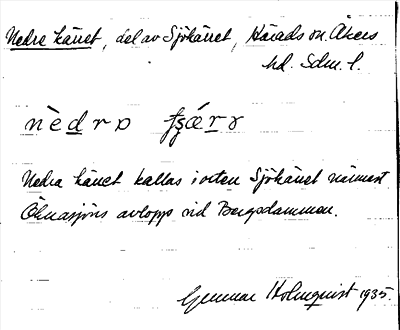 Nedre kärret, del av Sjökärret, Härads sn. Åkers
hd. Sdm. l.
nèdrɒ
Nedra kärret kallas i orten Sjökärret närmast
Ölnasjöns avlopp vid Bergsdammen.
Gunnar Holmquist 1935.